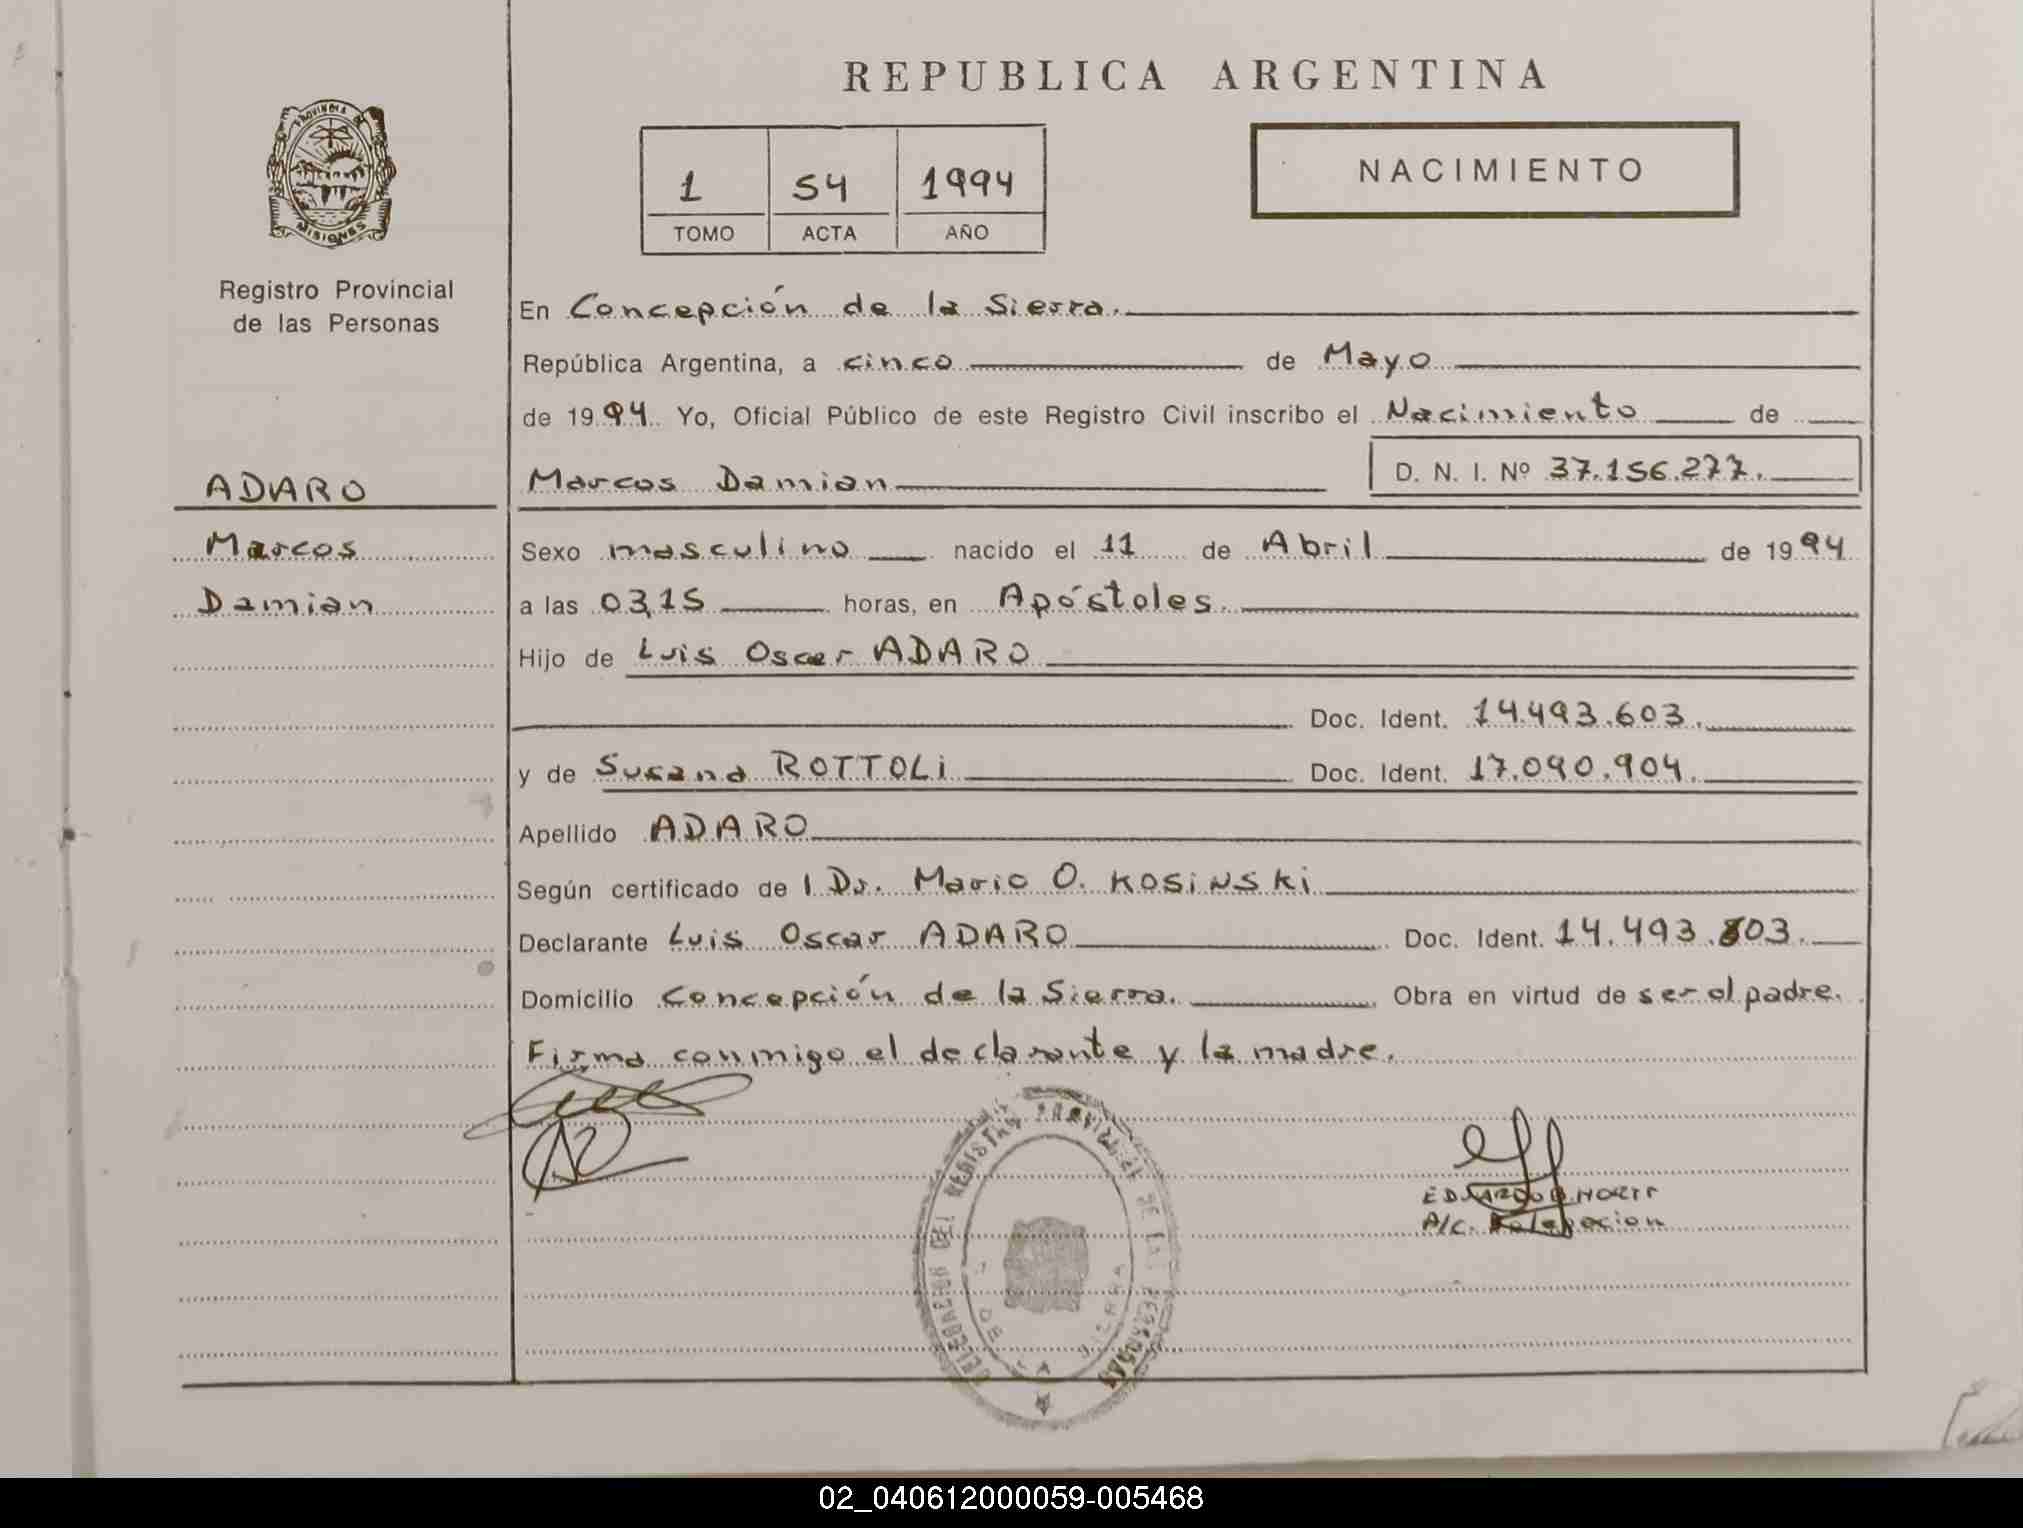 REPUBLICA ARGENTINA
PROVINCIA DE
MISIONES
1 54 1994
TOMO ACTA AÑO
NACIMIENTO
Registro Provincial
de las Personas
ADARO
Marcos
Damian
En Concepción de la Sierra.
República Argentina, a cinco de Mayo
de 1994 Yo, Oficial Público de este Registro Civil inscribo el Nacimiento de
Marcos Damian D. N. I. Nº 37.156.277.
Sexo masculino nacido el 11 de Abril de 1994
a las 03,15 horas, en Apóstoles
Hijo de Luis Oscar ADARO
Doc. Ident. 14.493.603.
y de Susana ROTTOLi Doc. Ident. 17.090.904.
Apellido ADARO
Según certificado de l Dr. Mario O. KOSiNSKi
Declarante Luis Oscar ADARO Doc. Ident. 14.493.803.
Domicilio Concepción de la Sierra. Obra en virtud de ser el padre.
Firma conmigo el declarante y la madre.
DELEGACION DEL REGISTRO PROVINCIAL DE LAS PERSONAS
DE LA SIERRA
EDUARDO
A/C. Delegacion
02_040612000059-005468